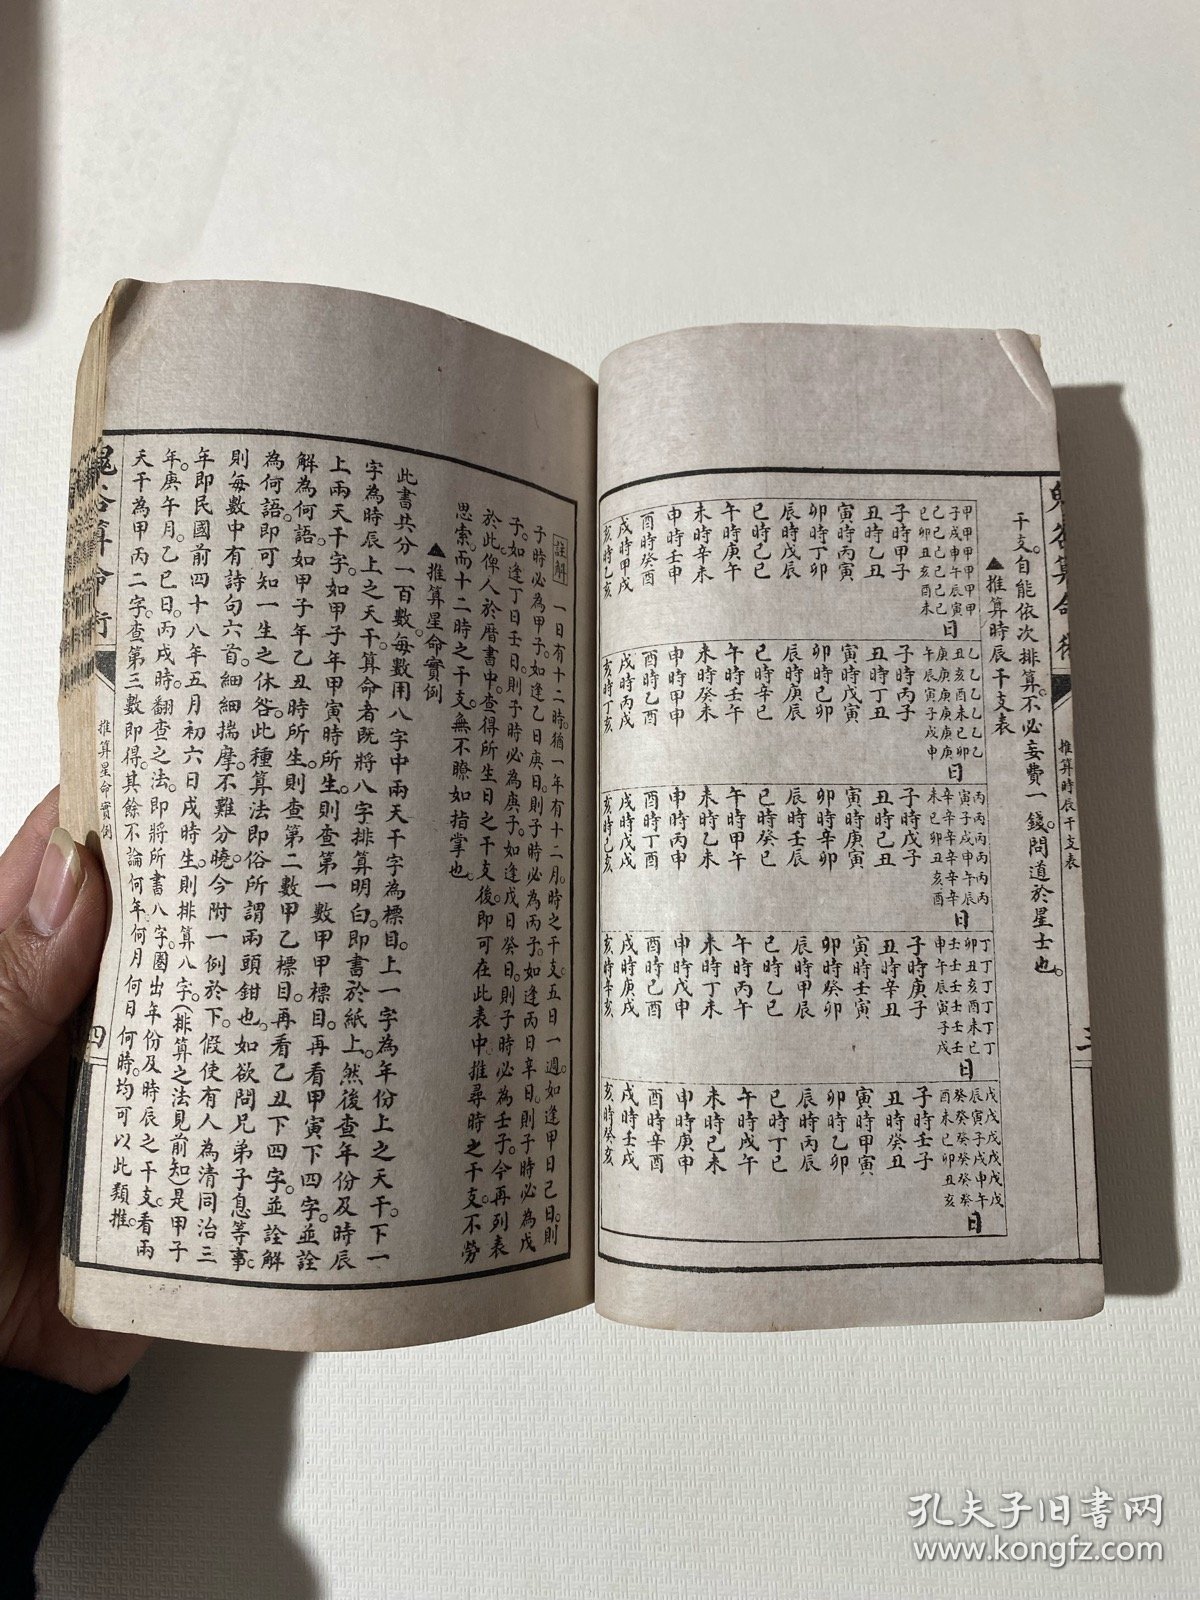 鬼谷算命術
推算時辰干支表
三
干支。自能依次排算。不必妄費一錢問道於星士也。
▲推算時辰干支表
甲甲甲甲甲甲
子戌申午辰寅
己己己己己己
巳卯丑亥酉未
日
子時甲子
丑時乙丑
寅時丙寅
卯時丁卯
辰時戊辰
巳時己巳
午時庚午
未時辛未
申時壬申
酉時癸酉
戌時甲戌
亥時乙亥
乙乙乙乙乙乙
丑亥酉未巳卯
庚庚庚庚庚庚
午辰寅子戌申
日
子時丙子
丑時丁丑
寅時戊寅
卯時己卯
辰時庚辰
巳時辛巳
午時壬午
未時癸未
申時甲申
酉時乙酉
戌時丙戌
亥時丁亥
丙丙丙丙丙丙
寅子戌申午辰
辛辛辛辛辛辛
未巳卯丑亥酉
日
子時戊子
丑時己丑
寅時庚寅
卯時辛卯
辰時壬辰
巳時癸巳
午時甲午
未時乙未
申時丙申
酉時丁酉
戌時戊戌
亥時己亥
丁丁丁丁丁丁
卯丑亥酉未巳
壬壬壬壬壬壬
申午辰寅子戌
日
子時庚子
丑時辛丑
寅時壬寅
卯時癸卯
辰時甲辰
巳時乙巳
午時丙午
未時丁未
申時戊申
酉時己酉
戌時庚戌
亥時辛亥
戊戊戊戊戊戊
辰寅子戌申午
癸癸癸癸癸癸
酉未巳卯丑亥
日
子時壬子
丑時癸丑
寅時甲寅
卯時乙卯
辰時丙辰
巳時丁巳
午時戊午
未時己未
申時庚申
酉時辛酉
戌時壬戌
亥時癸亥
註解 一日有十二時。猶一年有十二月。時之干支。五日一週。如逢甲日己日。則
子時必為甲子。如逢乙日庚日。則子時必為丙子。如逢丙日辛日。則子時必為戊
子。如逢丁日壬日。則子時必為庚子。如逢戊日癸日。則子時必為壬子。今再列表
於此。俾人於曆書中。查得所生日之干支後。即可在此表中。推尋時之干支。不勞
思索。而十二時之干支。無不瞭如指掌也。
▲推算星命實例
此書共分一百數。每數用八字中兩天干字為標目。上一字為年份上之天干。下一
字為時辰上之天干。算命者既將八字排算明白。即書於紙上。然後查年份及時辰
上兩天干字。如甲子年甲寅時所生。則查第一數甲甲標目。再看甲寅下四字。並詮
解為何語。如甲子年乙丑時所生。則查第二數甲乙標目。再看乙丑下四字。並詮解
為何語。即可知一生之休咎。此種算法即俗所謂兩頭鉗也。如欲問兄弟子息等事。
則每數中有詩句六首。細細揣摩。不難分曉。今附一例於下。假使有人為清同治三
年即民國前四十八年五月初六日戌時生。則排算八字。(排算之法見前知)是甲子
年。庚午月。乙巳日。丙戌時。翻查之法。即將所書八字。圈出年份及時辰之干支。看兩
天干為甲丙二字。查第三數即得。其餘不論何年。何月何日何時。均可以此類推。
鬼谷算命術
推算星命實例
四
孔夫子旧书网
www.kongfz.com